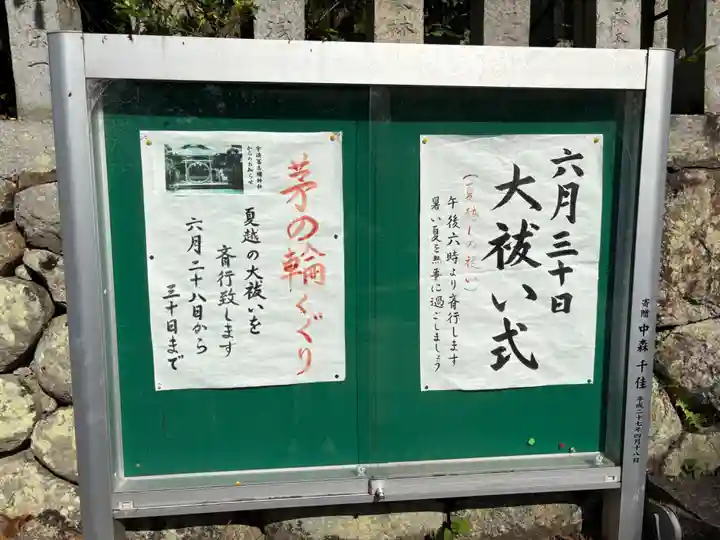 六月三十日
大祓い式
(夏越しの祓い)
午後六時より斎行します
暑い夏を無事に過ごしましょう
からのお知らせ
茅の輪くぐり
夏越の大祓いを
斎行致します
六月二十八日から
三十日まで
寄贈 中森 千佳 平成二十七年四月十八日